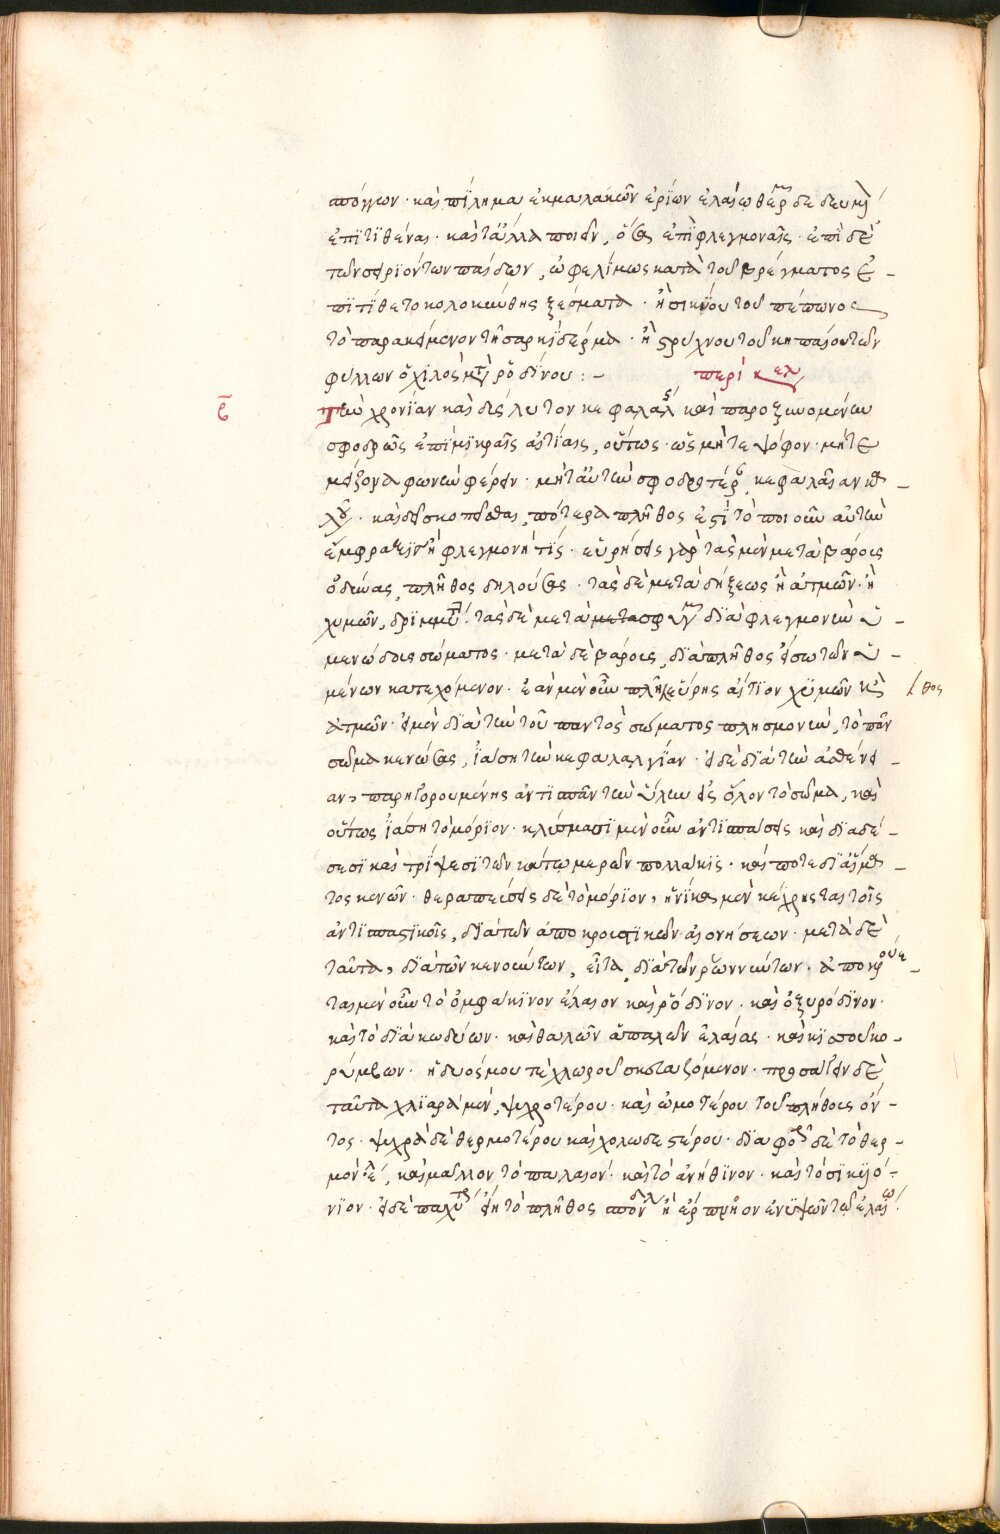 σπόγγων · καὶ πίλημα ἐκ μαλακῶν ἐρίων ἐλαίω θερμ δεδευμ
ἐπιτιθέναι · καὶ τἄλλα ποιεῖν, ὅσα ἐπὶ φλεγμοναῖς · ἐπὶ δὲ
τῶν σειριόντων παίδων, ὠφελίμως κατὰ τοῦ βρέγματος ἐ-
πιτίθετο κολοκύνθης ξέσματα · ἢ σικύου τοῦ πέπωνος
τὸ παρακείμενον τῆ σαρκὶ δέρμα · ἢ στρύχνου τοῦ κηπαίου τῶν
φύλλων ὁ χυλὸς μετὰ ῥοδίνου :-
περὶ κεφαλ
ε
Τὴν χρονίαν καὶ δύσλυτον κεφαλαλγ καὶ παροξυνομένην
σφοδρῶς ἐπὶ μικραῖς αἰτίαις, οὕτως · ὡς μήτε ψόφον · μήτε
μείζονα φωνὴν φέρειν · μήτ αὐτὴν σφοδροτέρ κεφαλαίαν
καὶ δεῖ σκοπεῖσθαι, πότερα πλῆθος ἐστὶ τὸ ποιοῦν αὐτὴν
ἔμφραξις ἢ φλεγμονή τις · εὑρήσεις γὰρ τὰς μὲν μετὰ βάρους
ὀδύνας, πλῆθος δηλούσας · τὰς δὲ μετὰ δήξεως ἢ ἀτμῶν · ἢ
χυμῶν, δριμύτ · τὰς δὲ μετὰ μετασφυγμ διὰ φλεγμονὴν ὑ-
μενώδους σώματος · μετὰ δὲ βάρους, διὰ πλῆθος εἴσω τῶν ὑ-
μένων κατεχόμενον · ἐὰν μὲν οὖν πλῆ εὕρης αἴτιον χυμῶν καὶ
θος
ἀτμῶν · εἰ μὲν διὰ τὴν τοῦ παντὸς σώματος πλησμονὴν, τὸ πᾶν
σῶμα κενώσας, ἰάση τὴν κεφαλαλγίαν · εἰ δὲ διὰ τὴν ἀσθένει-
αν, παρηγορουμένης ἀντισπᾶν τὴν ὕλην εἰς ὅλον τὸ σῶμα, καὶ
οὕτως ἰάση τὸ μόριον · κλύσμασι μὲν οὖν ἀντισπάσεις καὶ διαδέ-
σεσι καὶ τρίψεσι τῶν κάτω μερῶν πολλάκις · καί ποτε δι αἵμα-
τος κενῶν · θεραπεύσεις δὲ τὸ μόριον, ἡνίκα μὲν κέχρηται τοῖς
ἀντισπαστικοῖς, διὰ τῶν ἀποκρουστικῶν αἰονήσεων · μετὰ δὲ
ταῦτα, διὰ τῶν κενούντων, εἶτα διὰ τῶν ῥωννύντων · ἀποκρούε-
ται μὲν οὖν τὸ ὀμφάκινον ἔλαιον καὶ ῥόδινον · καὶ ὀξυρόδινον ·
καὶ τὸ διὰ κωδύων · καὶ θαλῶν ἁπαλῶν ἐλαίας · καὶ κισσοῦ κο-
ρύμβων · ἡδυόσμου τε χλωροῦ σκευαζόμενον · προσάγειν δὲ
ταῦτα χλιαρὰ μὲν, ψυχροτέρου · καὶ ὠμοτέρου τοῦ πλήθους ὄν-
τος · ψυχρὰ δὲ θερμοτέρου καὶ χολωδεστέρου · διαφορ δὲ τὸ θερ-
μὸν ἔλ, καὶ μᾶλλον τὸ παλαιόν · καὶ τὸ ἀνήθινον · καὶ τὸ σικυώ-
νιον · εἰ δὲ παχύτ εἴη τὸ πλῆθος ἢ ἕρπυλλον ἐνεψῶν τῶ ἐλαίω ·